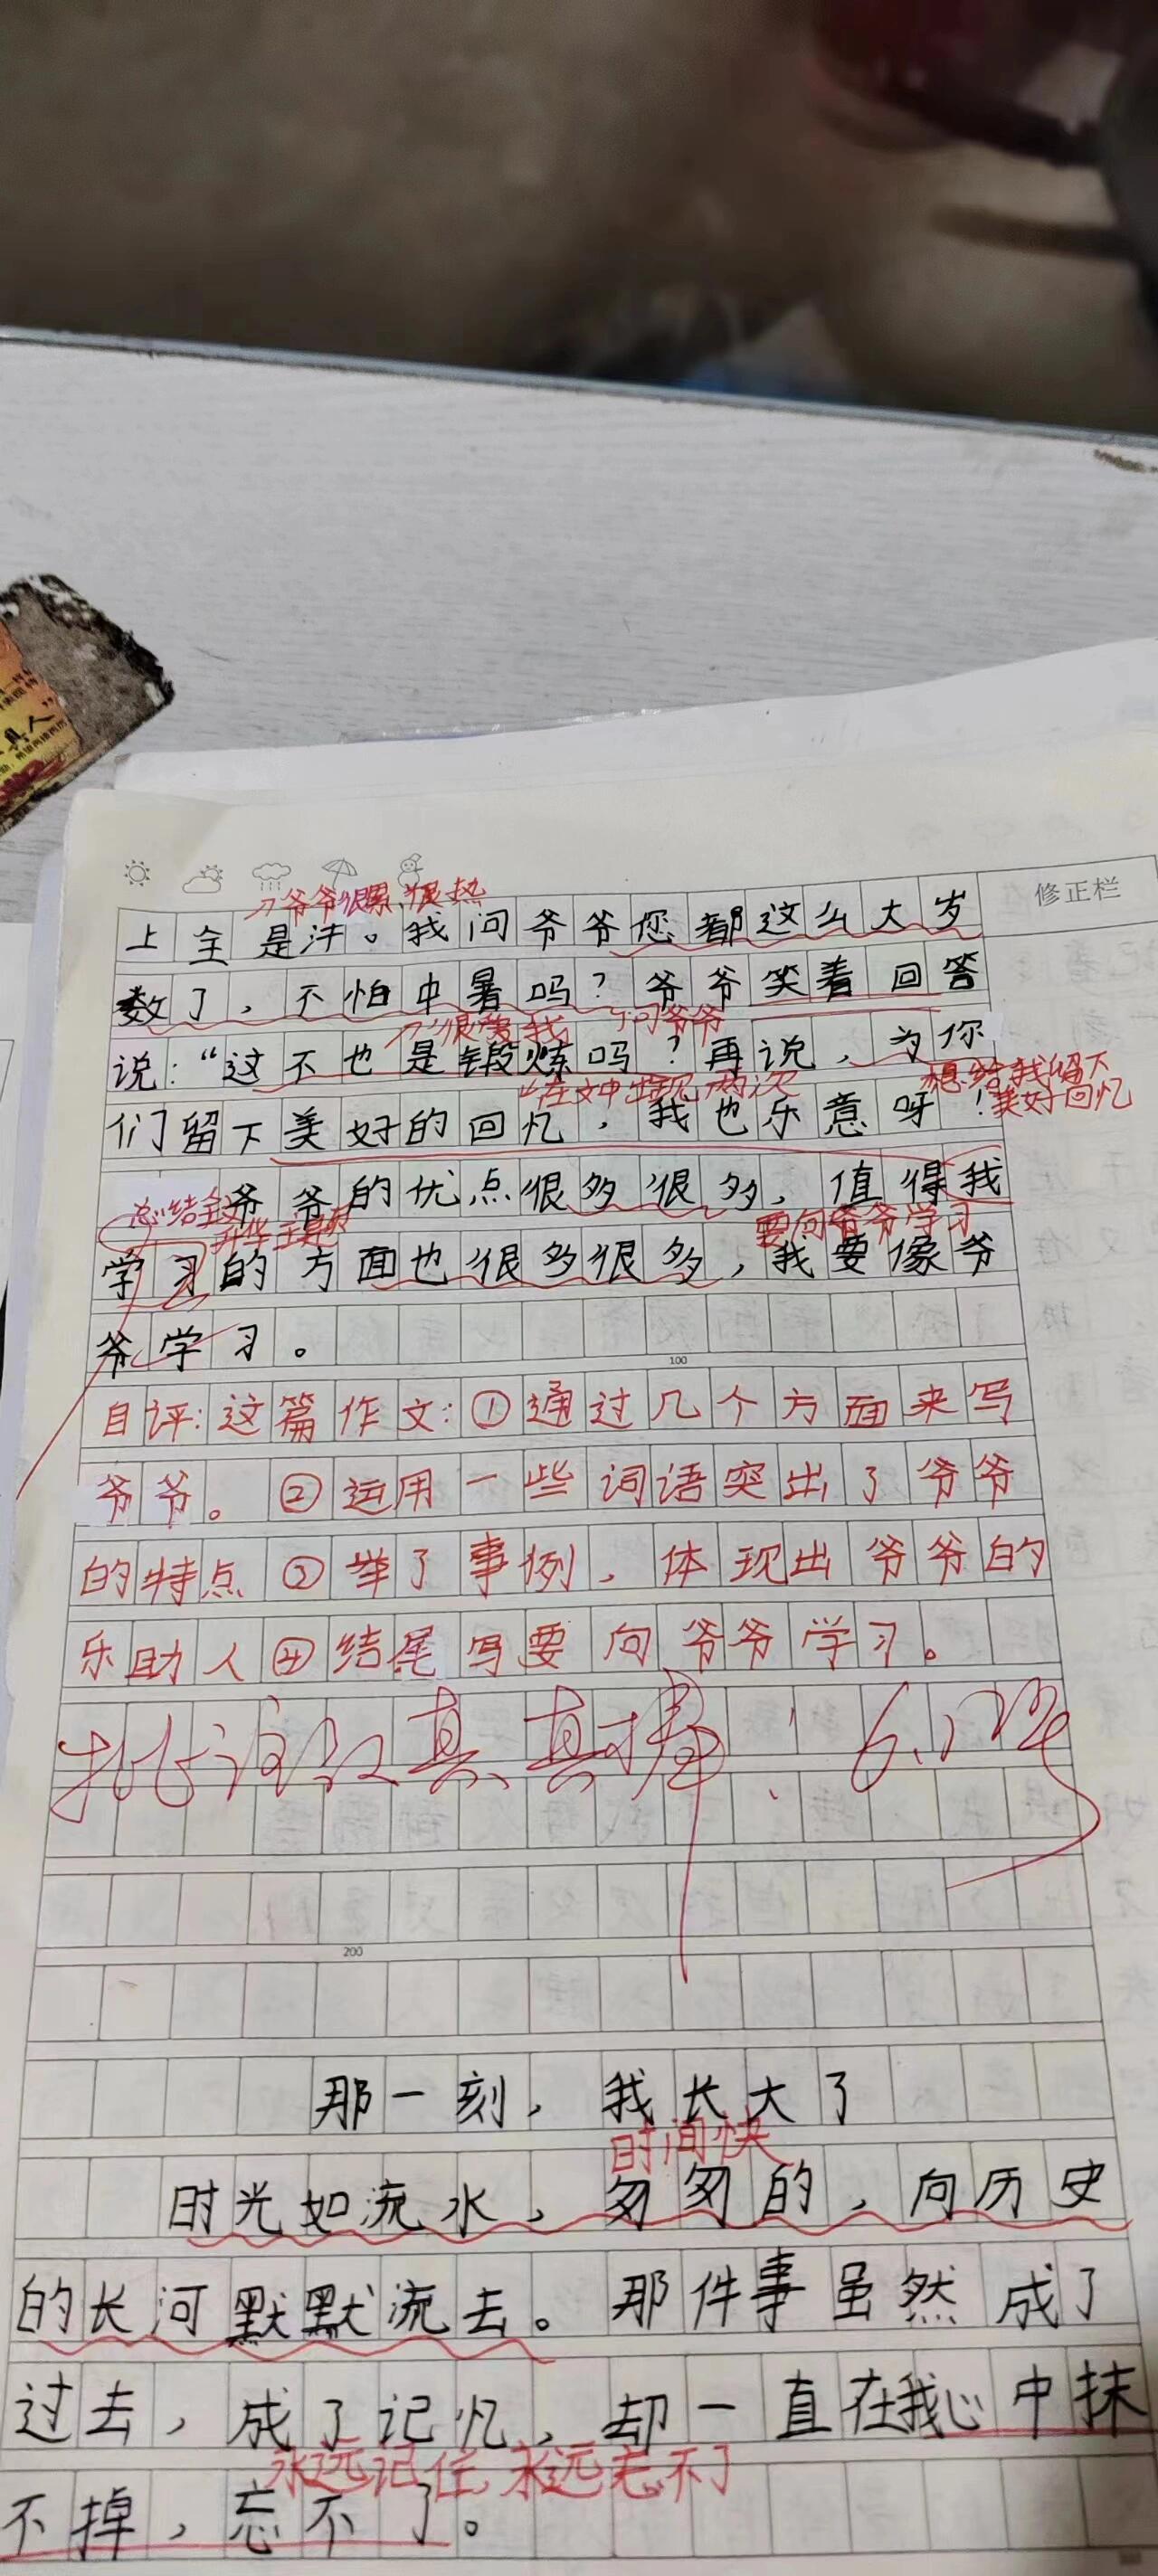 爷爷很累很热
修正栏
上全是汗。我问爷爷您都这么大岁
数了，不怕中暑吗？爷爷笑着回答
很爱我 问爷爷
说：“这不也是锻炼吗？再说，为你
在文中出现两次 想给我留下
美好回忆
们留下美好的回忆，我也乐意呀！
爷爷的优点很多很多，值得我
总结全文
升华主题 要向爷爷学习
学习的方面也很多很多，我要像爷
爷学习。
100
自评：这篇作文：①通过几个方面来写
爷爷。②运用一些词语突出了爷爷
的特点③举了事例，体现出爷爷的
乐助人④结尾写要向爷爷学习。
批注认真，真棒！
200
那一刻，我长大了
时间快
时光如流水，匆匆的，向历史
的长河默默流去。那件事虽然成了
过去，成了记忆，却一直在我心中抹
永远记住，永远忘不了
不掉，忘不了。